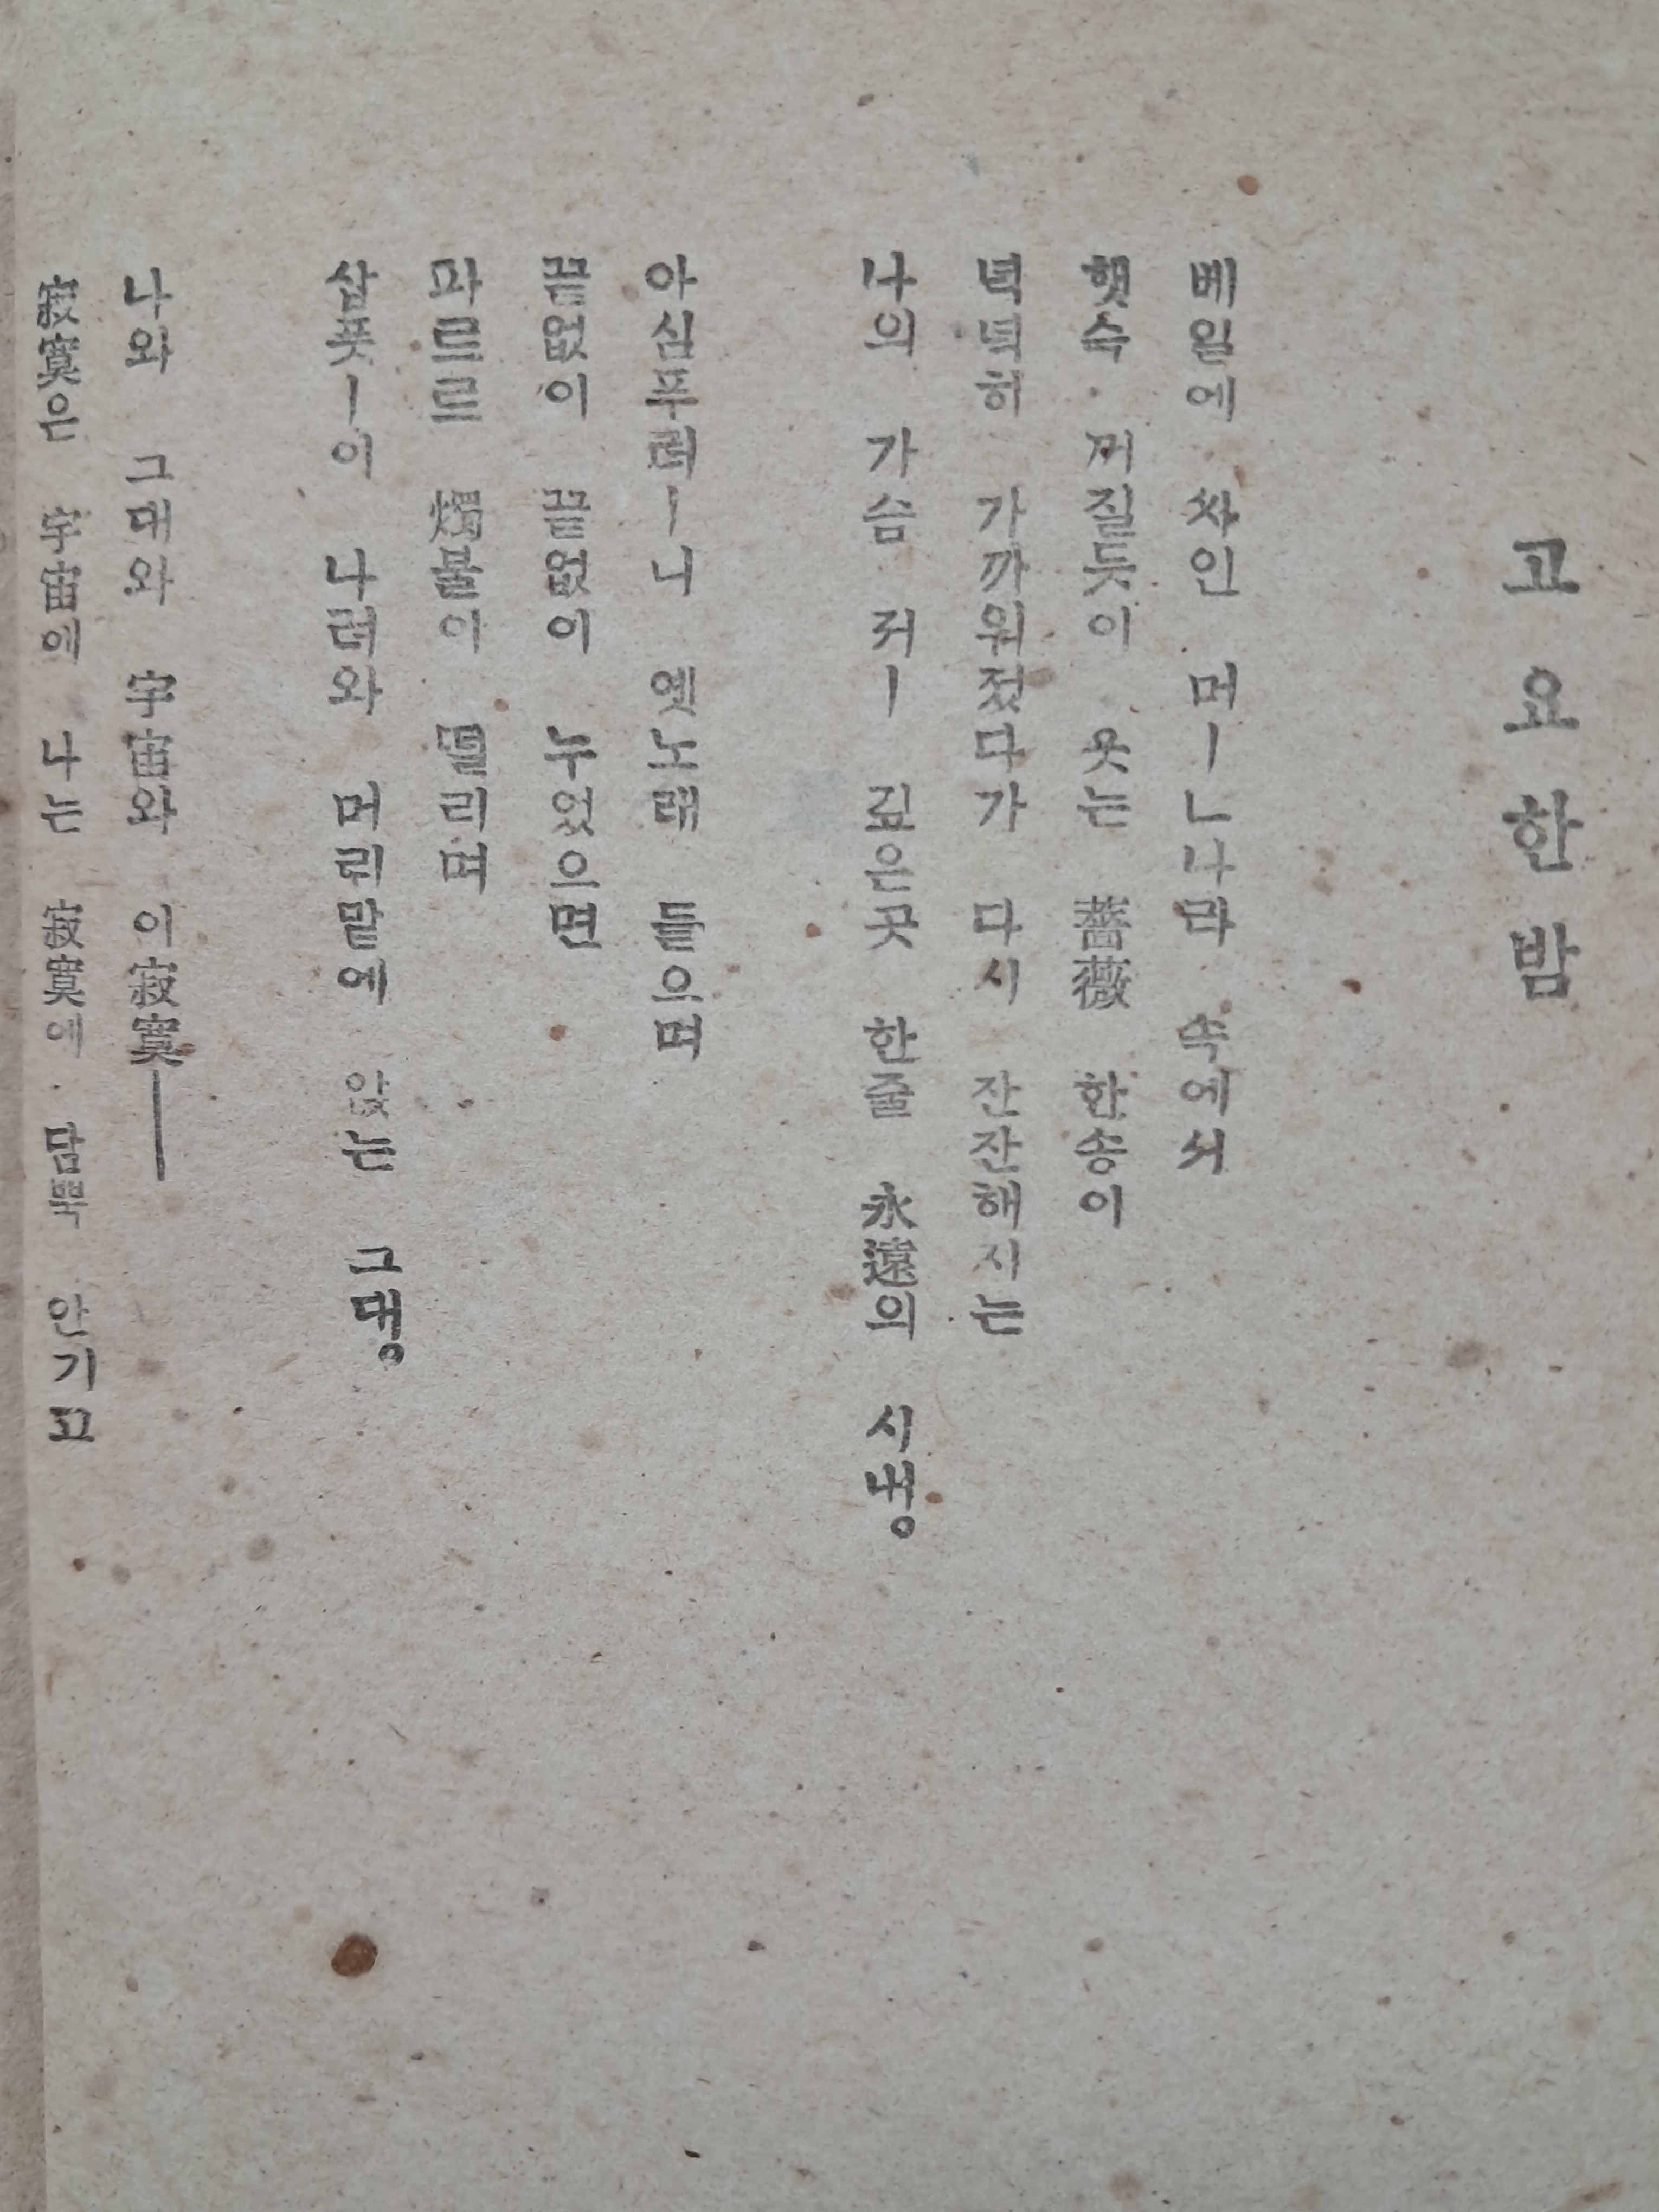 고요한밤
베일에 싸인 머ーㄴ나라 속에서
햇슥 꺼질듯이 웃는 薔薇 한송이
넉넉히 가까워젔다가 다시 잔잔해지는
나의 가슴 저ー 깊은곳 한줄 永遠의 시냉。
아심푸려ー니 옛노래 들으며
끝없이 끝없이 누었으면
파르르르 燭불이 떨리며
삽풋ー이 나려와 머리맡에 앉는 그댕。
나와 그대와 宇宙와 이寂寞――
寂寞은 宇宙에 나는 寂寞에 담뿍 안기고